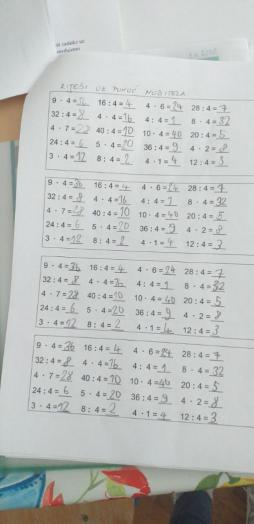 RIJEŠI UZ POMOĆ MNOŽITELJA
9 · 4 = 36 16 : 4 = 4 4 · 6 = 24 28 : 4 = 7
32 : 4 = 8 4 · 4 = 16 4 : 4 = 1 8 · 4 = 32
4 · 7 = 28 40 : 4 = 10 10 · 4 = 40 20 : 4 = 5
24 : 4 = 6 5 · 4 = 20 36 : 4 = 9 4 · 2 = 8
3 · 4 = 12 8 : 4 = 2 4 · 1 = 4 12 : 4 = 3
9 · 4 = 36 16 : 4 = 4 4 · 6 = 24 28 : 4 = 7
32 : 4 = 8 4 · 4 = 16 4 : 4 = 1 8 · 4 = 32
4 · 7 = 28 40 : 4 = 10 10 · 4 = 40 20 : 4 = 5
24 : 4 = 6 5 · 4 = 20 36 : 4 = 9 4 · 2 = 8
3 · 4 = 12 8 : 4 = 2 4 · 1 = 4 12 : 4 = 3
9 · 4 = 36 16 : 4 = 4 4 · 6 = 24 28 : 4 = 7
32 : 4 = 8 4 · 4 = 16 4 : 4 = 1 8 · 4 = 32
4 · 7 = 28 40 : 4 = 10 10 · 4 = 40 20 : 4 = 5
24 : 4 = 6 5 · 4 = 20 36 : 4 = 9 4 · 2 = 8
3 · 4 = 12 8 : 4 = 2 4 · 1 = 4 12 : 4 = 3
9 · 4 = 36 16 : 4 = 4 4 · 6 = 24 28 : 4 = 7
32 : 4 = 8 4 · 4 = 16 4 : 4 = 1 8 · 4 = 32
4 · 7 = 28 40 : 4 = 10 10 · 4 = 40 20 : 4 = 5
24 : 4 = 6 5 · 4 = 20 36 : 4 = 9 4 · 2 = 8
3 · 4 = 12 8 : 4 = 2 4 · 1 = 4 12 : 4 = 3